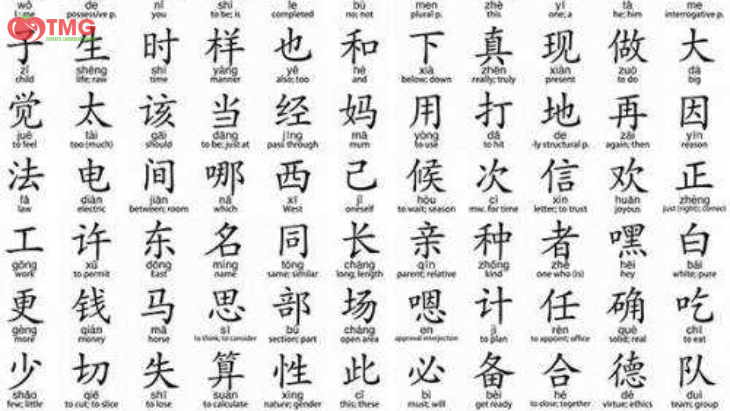 wǒ de nǐ shì le bù men zhè yī tā me
I; me possessive p. you to be; is completed no; not plural p. this one; a he; him interrogative p.
TMG
子 生 时 样 也 和 下 真 现 做 大
zǐ shēng shí yàng yě hé xià zhēn xiàn zuò dà
child life; raw time manner also; too and below; down really; truly present to do big
觉 太 该 当 经 妈 用 打 地 再 因
jué tài gāi dāng jīng mā yòng dǎ de zài yīn
to feel too (much) should to be; just at pass through mum to use to hit -ly structural p. again; then reason
法 电 间 哪 西 己 候 次 信 欢 正
fǎ diàn jiān nǎ xī jǐ hòu cì xìn huān zhèng
law electric between; room which West oneself to wait; season mw. for time letter; to trust joyous just (right); correct
工 许 东 名 同 长 亲 种 者 嘿 白
gōng xǔ dōng míng tóng cháng qīn zhǒng zhě hēi bái
work to permit East name same; similar long; length parent; relative kind one who (is) hey white; pure
更 钱 马 思 部 场 嗯 计 任 确 吃
gèng qián mǎ sī bù chǎng en jì rèn què chī
more money horse to think; to consider section; part open area approval interjection to plan to appoint; office solid; real to eat
少 切 失 算 性 此 必 备 合 德 队
shǎo qiē shī suàn xìng cǐ bì bèi hé dé duì
few; little to cut; to slice to lose to calculate nature; gender this; these must; will get ready to close; together virtue; ethics team; group